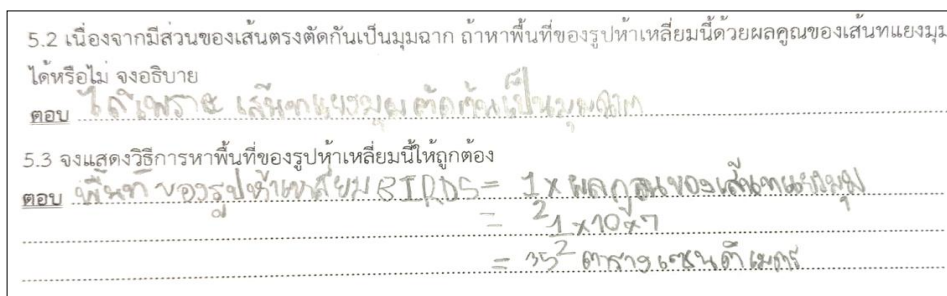 5.2 เนื่องจากมีส่วนของเส้นตรงตัดกันเป็นมุมฉาก ถ้าหาพื้นที่ของรูปห้าเหลี่ยมนี้ด้วยผลคูณของเส้นทแยงมุม
ได้หรือไม่ จงอธิบาย
ตอบ ได้เพราะ เส้นทแยงมุมตัดกันเป็นมุมฉาก
5.3 จงแสดงวิธีการหาพื้นที่ของรูปห้าเหลี่ยมนี้ให้ถูกต้อง
ตอบ พื้นที่ของรูปห้าเหลี่ยมBIRDS = 1/2 × ผลคูณของเส้นทแยงมุม
= 1/2 × 10 × 7
= 35 ตารางเซนติเมตร